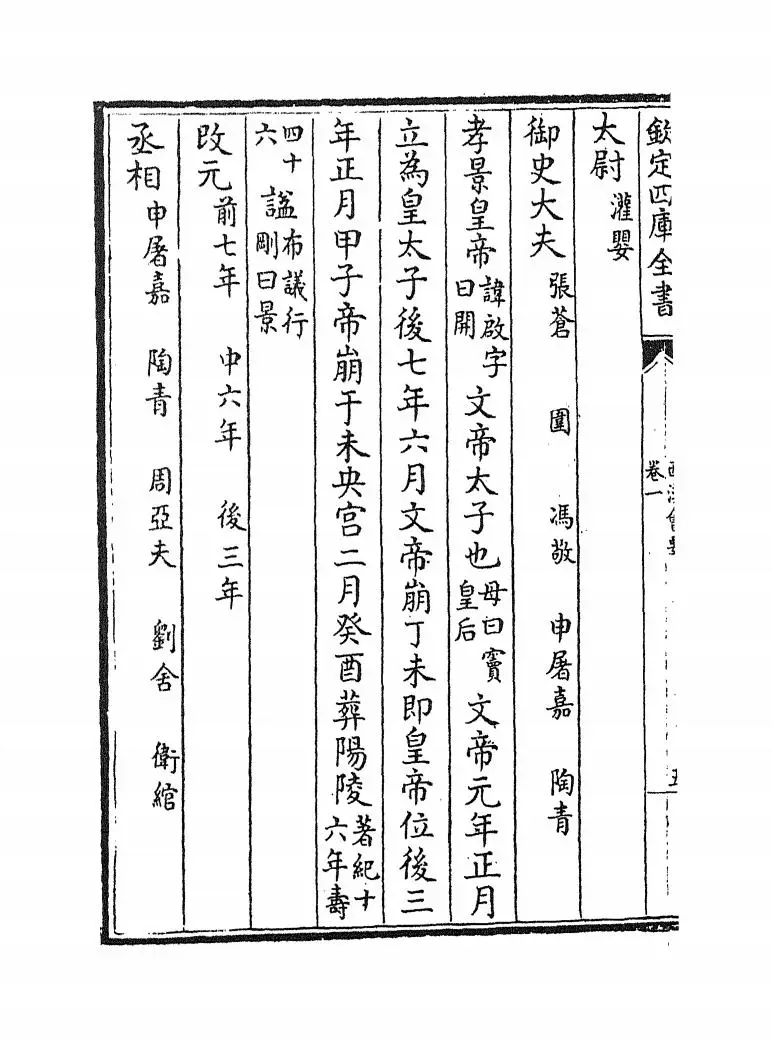 欽定四庫全書
卷一
太尉 灌嬰
御史大夫 張蒼 圍 馮敬 申屠嘉 陶青
孝景皇帝 諱啟字曰開 文帝太子也 母曰竇皇后 文帝元年正月
立為皇太子後七年六月文帝崩丁未即皇帝位後三
年正月甲子帝崩于未央宫二月癸酉葬陽陵 著紀十六年壽
四十六 謚 布議行剛曰景
改元 前七年 中六年 後三年
丞相 申屠嘉 陶青 周亞夫 劉舍 衛綰